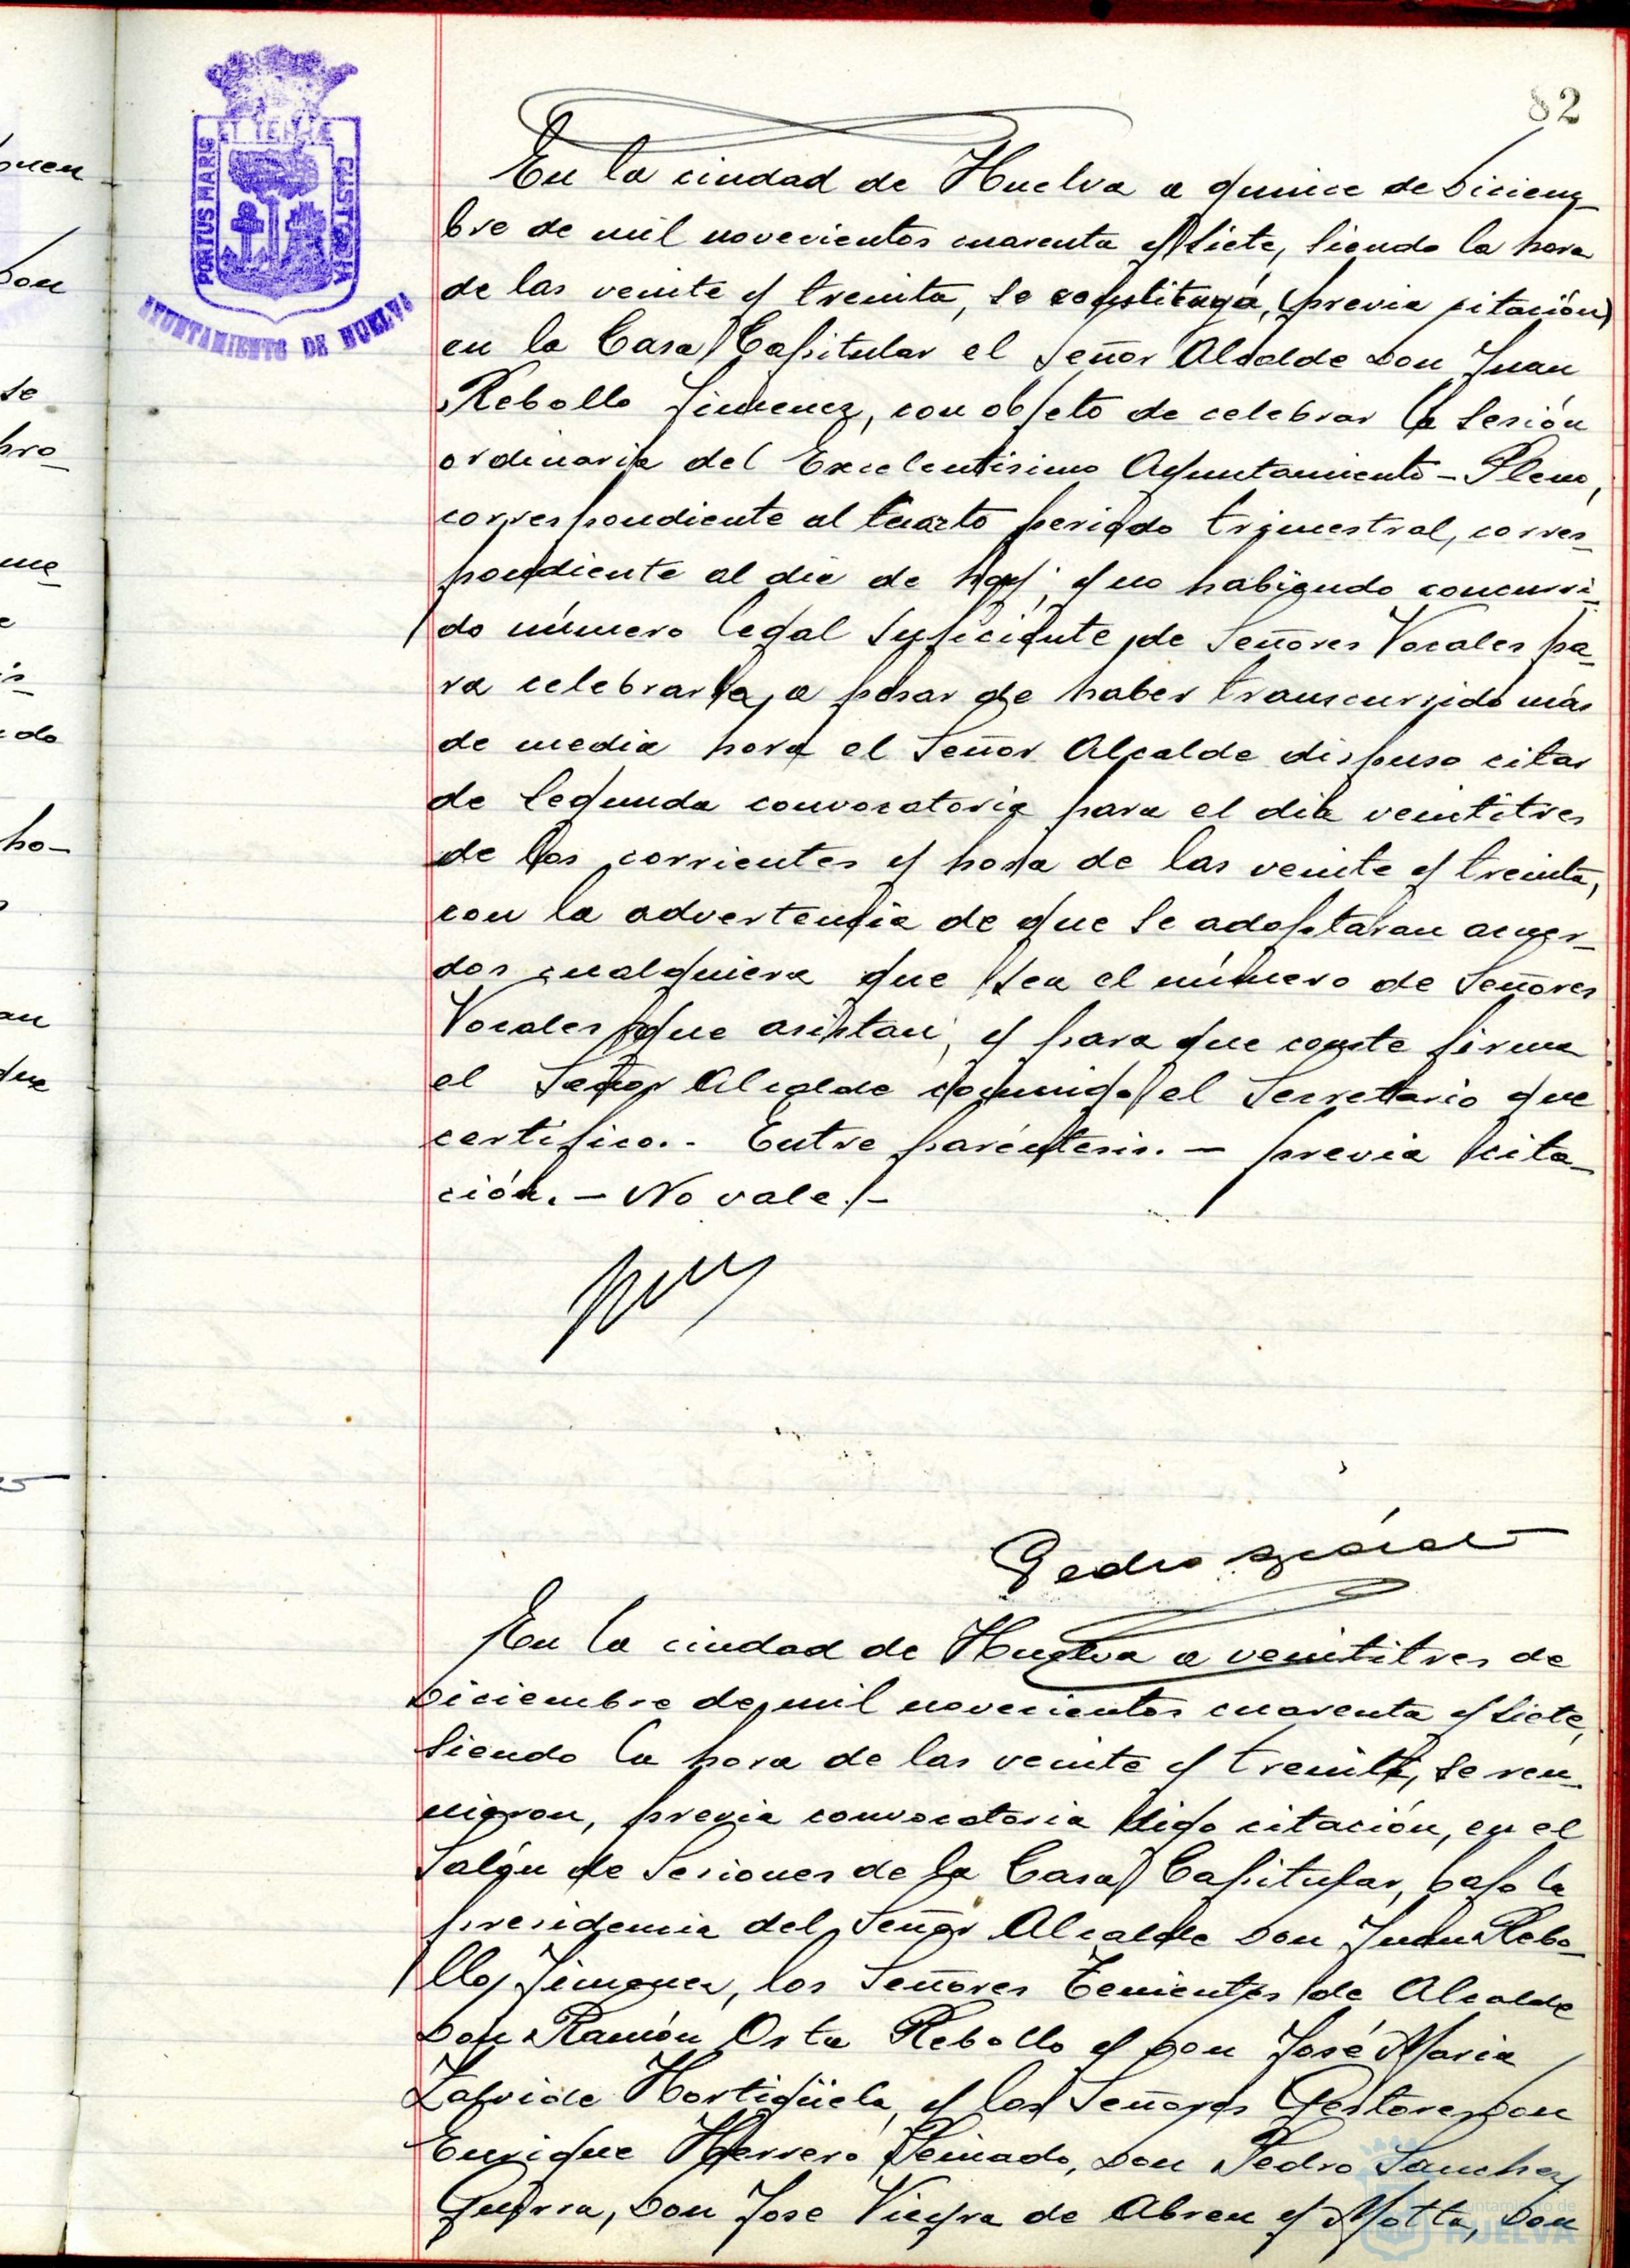 82
PORTUS MARIS
ET TERRE
CUSTODIA
AYUNTAMIENTO DE HUELVA
En la ciudad de Huelva a quince de Diciem-
bre de mil novecientos cuarenta y siete, siendo la hora
de las veinte y treinta, se constituyó, (previa citación)
en la Casa Capitular el Señor Alcalde Don Juan
Rebollo Jimenez, con objeto de celebrar la sesión
ordinaria del Excelentisimo Ayuntamiento-Pleno,
correspondiente al cuarto periodo trimestral, corres-
pondiente al dia de hoy; y no habiendo concurri-
do número legal suficiente de Señores Vocales pa-
ra celebrarla, a pesar de haber transcurrido más
de media hora el Señor Alcalde dispuso citar
de segunda convocatoria para el dia veintitres
de los corrientes y hora de las veinte y treinta,
con la advertencia de que se adoptaran acuer-
dos cualquiera que sea el número de Señores
Vocales que asistan; y para que conste firma
el Señor Alcalde conmigo el Secretario que
certifico.- Entre paréntesis.- previa cita-
ción.- No vale.-
Pedro
En la ciudad de Huelva a veintitres de
Diciembre de mil novecientos cuarenta y siete,
siendo la hora de las veinte y treinta, se reu-
nieron, previa convocatoria digo citación, en el
Salón de Sesiones de la Casa Capitular, bajo la
presidencia del Señor Alcalde Don Juan Rebo-
llo Jimenez, los Señores Tenientes de Alcalde
Don Ramón Orta Rebollo y Don José Maria
Zafride Hortigüela, y los Señores Gestores Don
Enrique Herrero Peinado, Don Pedro Sanchez
Guerra, Don Jose Vieyra de Abreu y Motta, Don
Ayuntamiento de
HUELVA